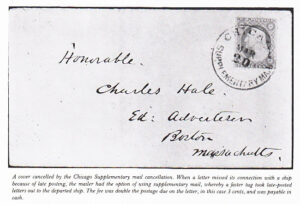 CHICAGO
MAR
20
SUPPLEMENTARY MAIL
Honorable.
Charles Hale.
Ed: Advertiser
Boston
Massachutts.
A cover cancelled by the Chicago Supplementary mail cancellation. When a letter missed its connection with a ship
because of late posting, the mailer had the option of using supplementary mail, whereby a faster tug took late-posted
letters out to the departed ship. The fee was double the postage due on the letter, in this case 3 cents, and was payable in
cash.